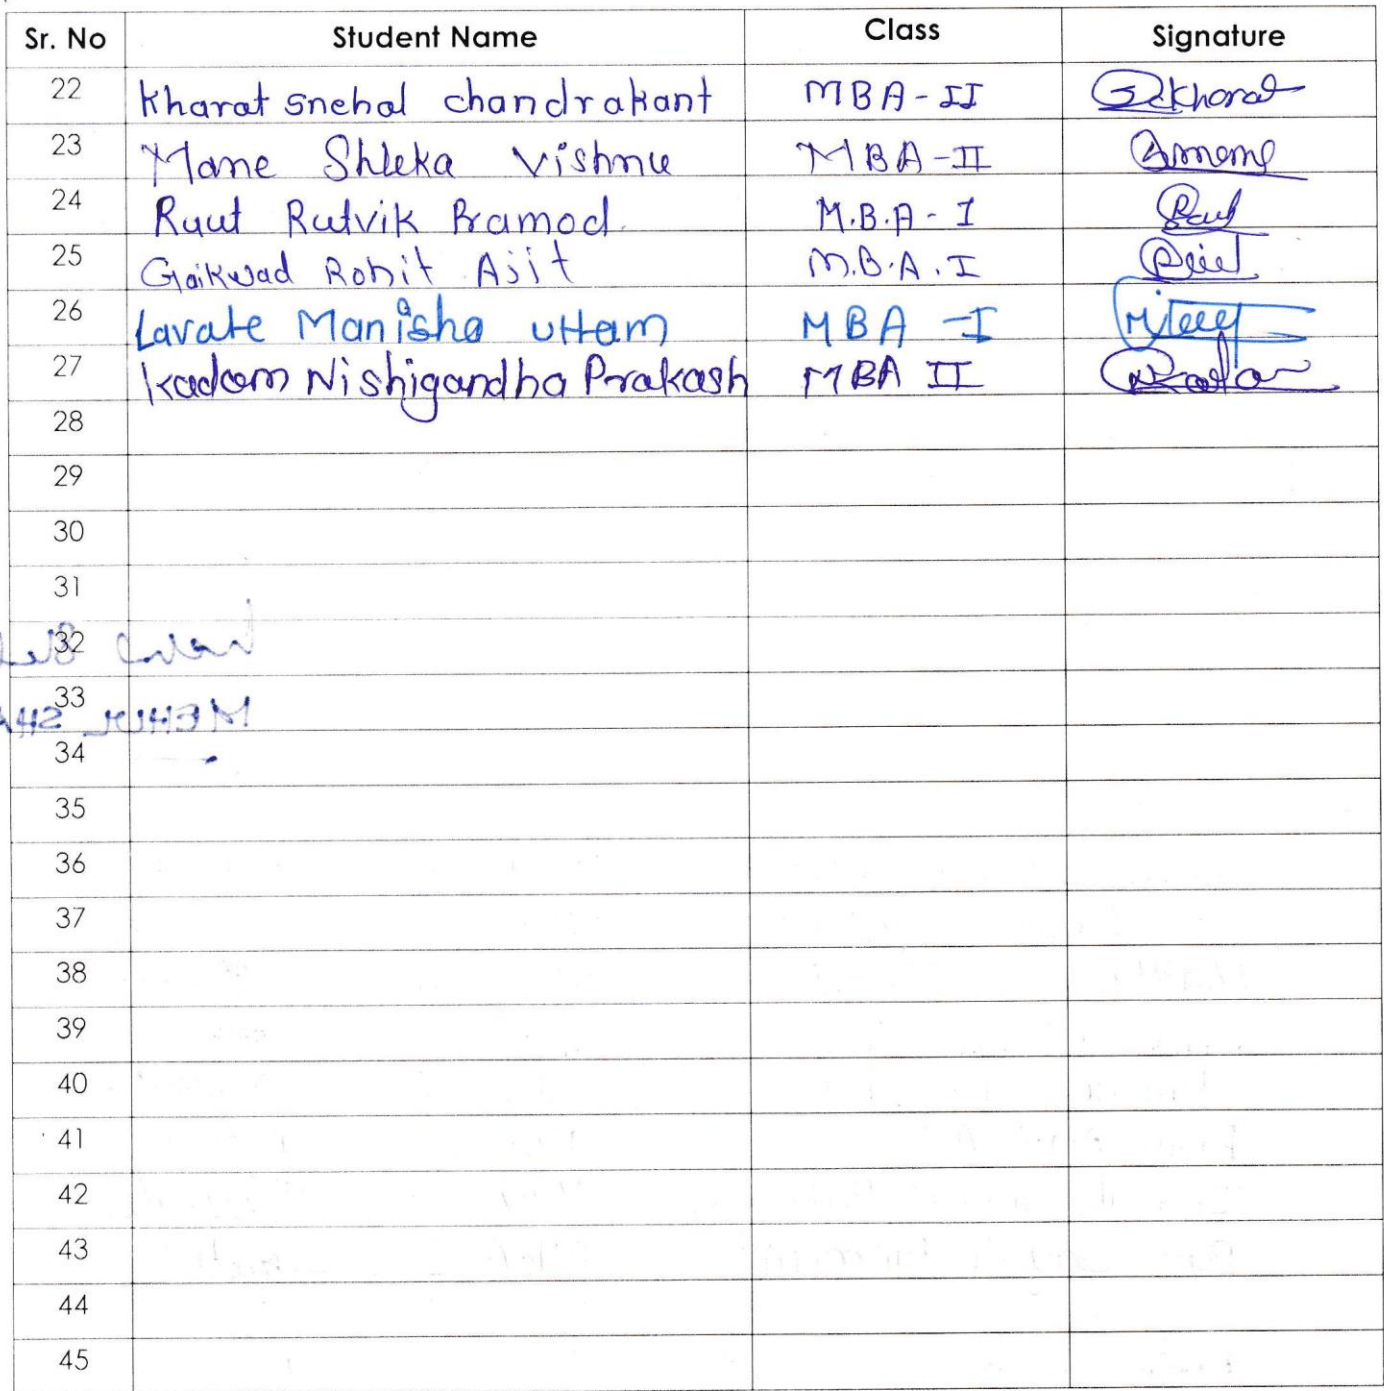 Sr. No Student Name Class Signature
22 Kharat Snehal chandrakant MBA-II
23 Mane Shleka Vishnu MBA-II
24 Raut Rutvik Pramod. M.B.A- I
25 Gaikwad Rohit Ajit M.B.A. I
26 Lavate Manisha Uttam MBA -I
27 Kadam Nishigandha Prakash MBA II
28
29
30
31
32
33
MEHUL SHA
34
35
36
37
38
39
40
41
42
43
44
45